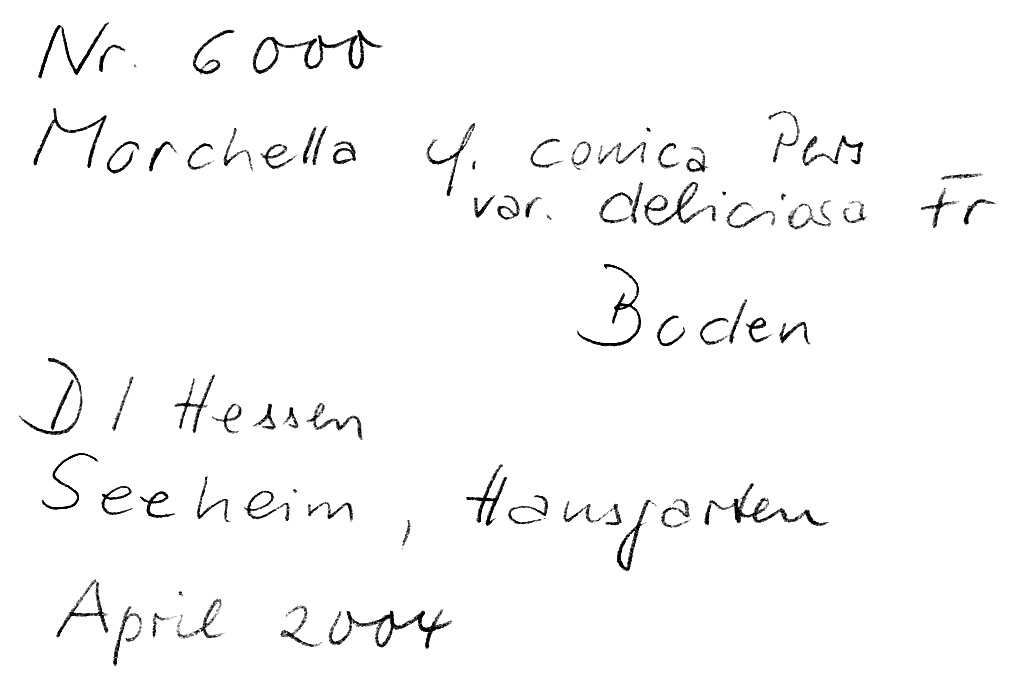 Nr. 6000
Morchella cf. conica Pers
var. deliciosa Fr
Boden
D / Hessen
Seeheim, Hausgarten
April 2004